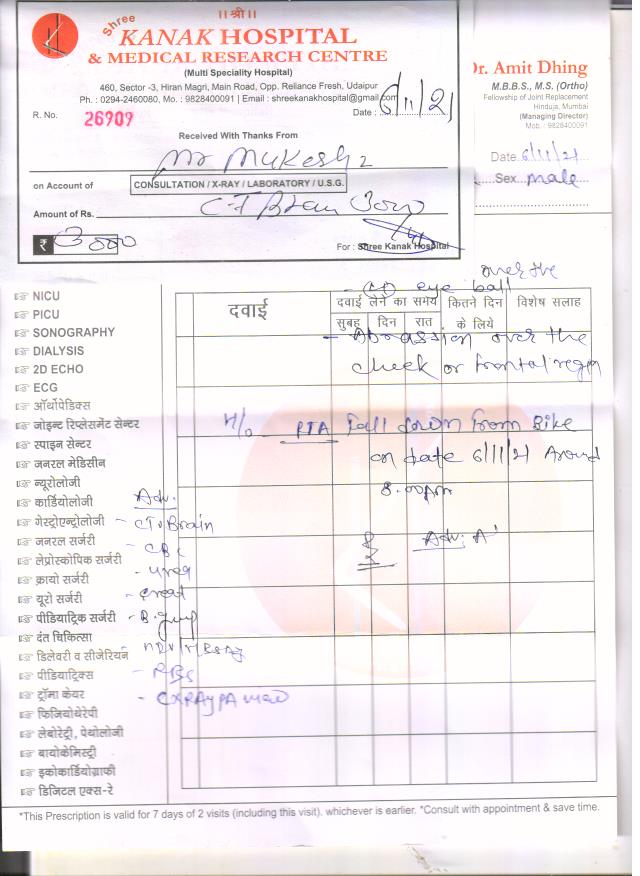 ।। श्री ।।
Shree
KANAK HOSPITAL
& MEDICAL RESEARCH CENTRE
(Multi Speciality Hospital)
460, Sector -3, Hiran Magri, Main Road, Opp. Reliance Fresh, Udaipur
Ph. : 0294-2460080, Mo. : 9828400091 | Email : shreekanakhospital@gmail.com
R. No. 26909
Date : 6/11/21
Received With Thanks From
Mr Mukesh
on Account of CONSULTATION / X-RAY / LABORATORY / U.S.G.
Amount of Rs. CT Brain
₹ 3000
For : Shree Kanak Hospital
Dr. Amit Dhing
M.B.B.S., M.S. (Ortho)
Fellowship of Joint Replacement
Hinduja, Mumbai
(Managing Director)
Mob. : 9828400091
Date 6/11/21
Sex male
over the
eye ball
दवाई
दवाई लेने का समय
सुबह दिन रात
कितने दिन के लिये
विशेष सलाह
- Abrassion over the
cheek or frontal region
H/o RTA fall down from Bike
on date 6/11/21 Around
8.00pm
Adv.
NICU
PICU
SONOGRAPHY
DIALYSIS
2D ECHO
ECG
ऑर्थोपेडिक्स
जोइन्ट रिप्लेसमेंट सेन्टर
स्पाइन सेन्टर
जनरल मेडिसीन
न्यूरोलोजी
कार्डियोलोजी Adv.
गेस्ट्रोएन्ट्रोलोजी - CT Brain
जनरल सर्जरी - CBC
लेप्रोस्कोपिक सर्जरी - urea
क्रायो सर्जरी
यूरो सर्जरी - creat
पीडियाट्रिक सर्जरी - B. Group
दंत चिकित्सा
डिलेवरी व सीजेरियन
पीडियाट्रिक्स - RBS
ट्रॉमा केयर - CXRAY PA view
फिनियोथेरेपी
लेबोरेट्री, पेथोलोजी
बायोकेमिस्ट्री
इकोकार्डियोग्राफी
डिजिटल एक्स-रे
*This Prescription is valid for 7 days of 2 visits (including this visit). whichever is earlier. *Consult with appointment & save time.